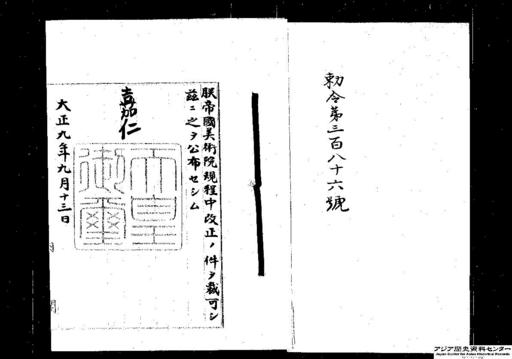 勅令第三百八十六號
朕帝國美術院規程中改正ノ件ヲ裁可シ
茲ニ之ヲ公布セシム
嘉仁
天皇御璽
大正九年九月十三日
アジア歴史資料センター
Japan Center for Asian Historical Records